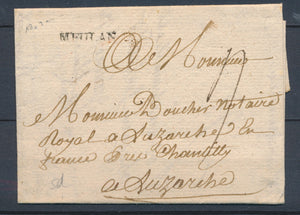 MEULAN
A Monsieur
Monsieur Boucher Notaire
Royal a Luzarche En
france Pres Chantilly
a Luzarche